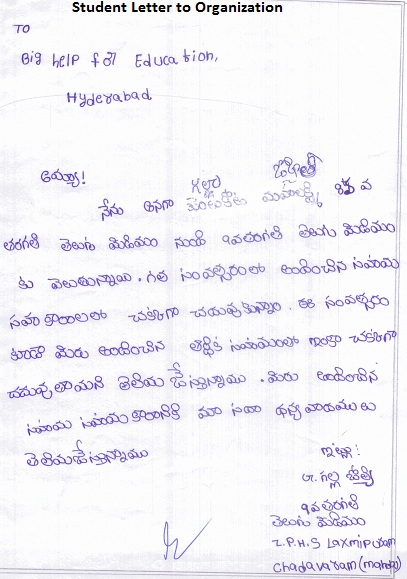 Student Letter to Organization
TO
Big help for Education,
Hyderabad
అయ్యా!
గల్లా జ్యోతి
నేను అనగా 8వ
తరగతి తెలుగు మీడియం నుండి 9వతరగతి తెలుగు మీడియం
కు వెలుతున్నాయి. గత సంవత్సరంలో అందించిన సహాయ
సహకారాలలో చక్కగా చదువుకున్నాం. ఈ సంవత్సరం
కూడా మీరు అందించిన ఆర్థిక సహాయంలో ఇంకా చక్కగా
చదువుతాయని తెలియచేస్తున్నాము. మీరు అందించిన
సహాయ సహాయకారానికి మా సదా ధన్యవాదములు
తెలియచేస్తున్నాము
ఇట్లు:
గల్లా జ్యోతి
9వతరగతి
తెలుగు మీడియం
Z.P.H.S Laxmipuram
Chadavaram (mandal)